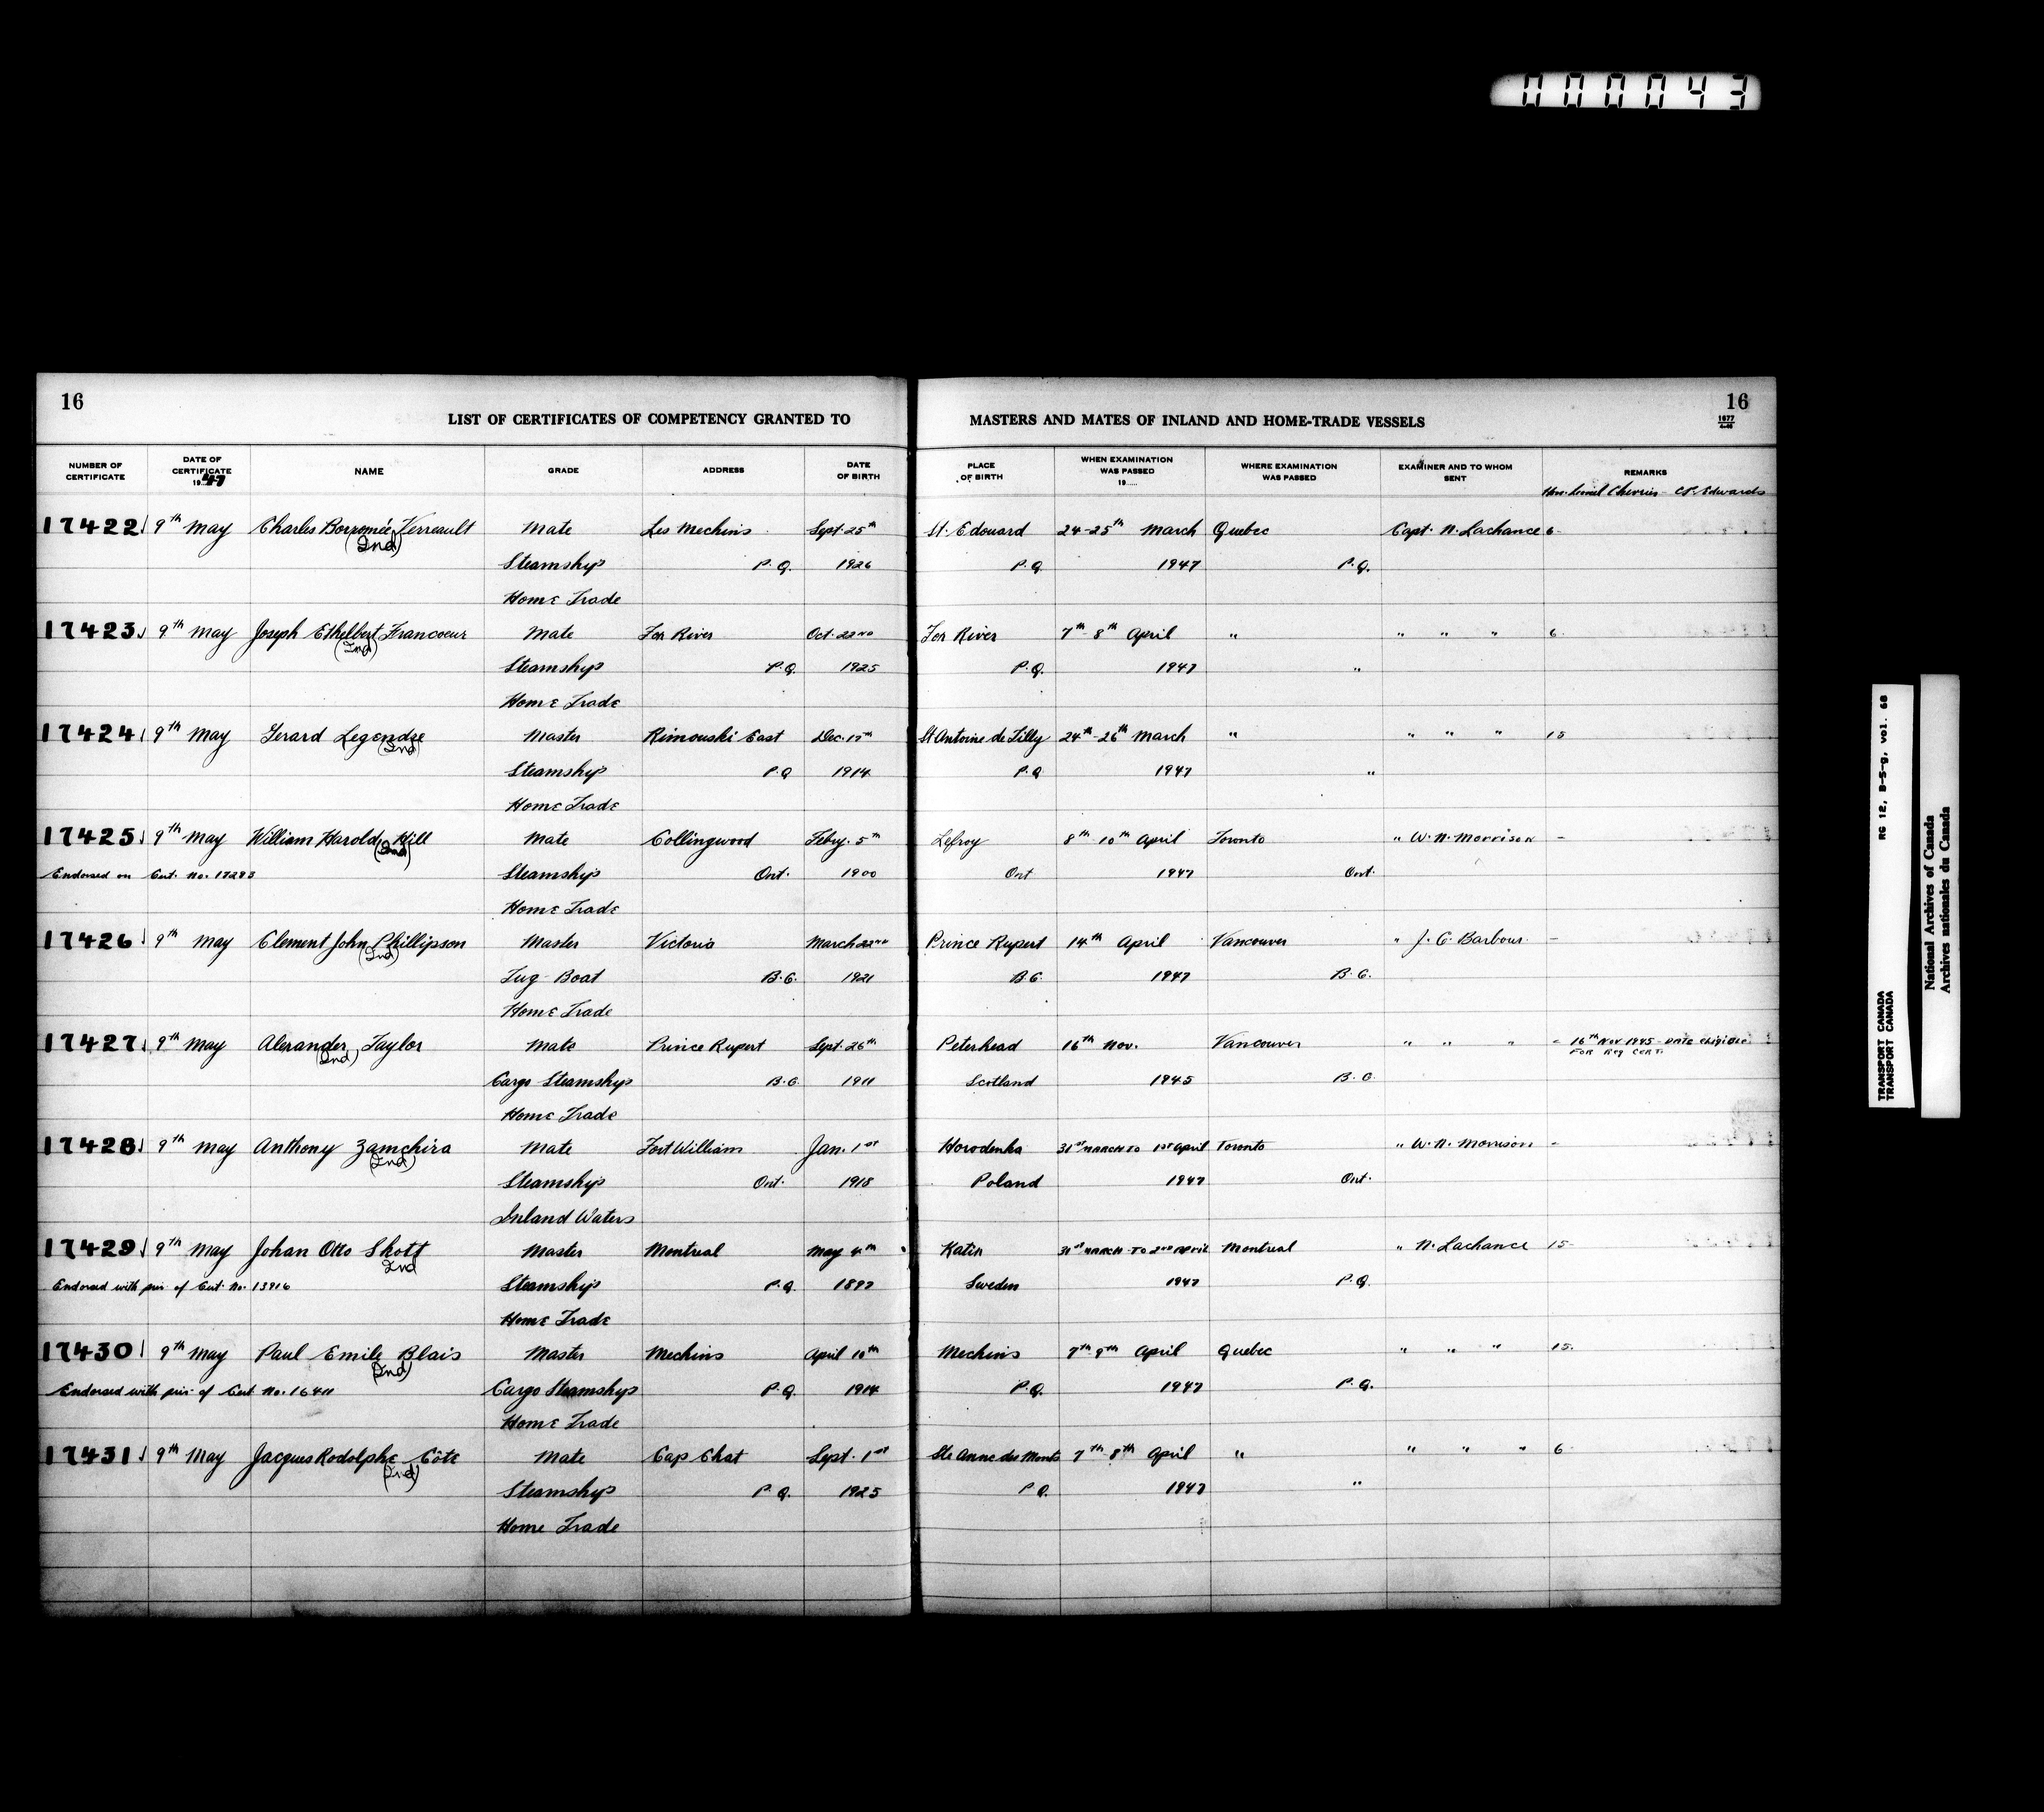 000043
16
LIST OF CERTIFICATES OF COMPETENCY GRANTED TO MASTERS AND MATES OF INLAND AND HOME-TRADE VESSELS
16
1677
NUMBER OF CERTIFICATE DATE OF CERTIFICATE 1947 NAME GRADE ADDRESS DATE OF BIRTH PLACE OF BIRTH WHEN EXAMINATION WAS PASSED 19..... WHERE EXAMINATION WAS PASSED EXAMINER AND TO WHOM SENT REMARKS
Hon. Lionel Chevrier - C.P. Edwards
17422 9th May Charles Borromée Verreault Mate Les Mechins Sept. 25th St. Edouard 24-25th March Quebec Capt. N. Lachance 6
(Ind)
Steamship P.Q. 1926 P.Q. 1947 P.Q.
Home Trade
17423 9th May Joseph Ethelbert Francoeur Mate Fox River Oct. 22nd Fox River 7th-8th April " " " " 6
(Ind)
Steamship P.Q. 1925 P.Q. 1947 "
Home Trade
17424 9th May Gerard Legendre Master Rimouski East Dec. 17th St Antoine de Tilly 24th-26th March " " " " 15
(Ind)
Steamship P.Q 1914 P.Q 1947 "
Home Trade
17425 9th May William Harold Hill Mate Collingwood Feby. 5th Lefroy 8th-10th April Toronto " W. N. Morrison -
(Ind)
Endorsed on Cert. No. Steamship Ont. 1900 Ont 1947 Ont.
Home Trade
17426 9th May Clement John Phillipson Master Victoria March 22nd Prince Rupert 14th April Vancouver " J. C. Barbour -
(Ind)
Tug-Boat B.C. 1921 B.C. 1947 B.C.
Home Trade
17427 9th May Alexander Taylor Mate Prince Rupert Sept. 26th Peterhead 16th Nov. Vancouver " " " - 16th Nov 1945 - DATE eligible
(Ind) FOR REG CERT.
Cargo Steamship B.C. 1911 Scotland 1945 B.C.
Home Trade
17428 9th May Anthony Zamchira Mate Fort William Jan. 1st Horodenka 31st MARCH TO 1st April Toronto " W. N. Morrison -
(Ind)
Steamship Ont. 1918 Poland 1947 Ont.
Inland Waters
17429 9th May Johan Otto Skott Master Montreal May 4th Katin 31st MARCH TO 2nd April Montreal " N. Lachance 15
Ind
Endorsed with priv. of Cert. No. 13916 Steamship P.Q. Sweden 1947 P.Q.
Home Trade
17430 9th May Paul Emile Blais Master Mechins April 10th Mechins 7th-9th April Quebec " " " 15.
(Ind)
Endorsed with priv. of Cert No. 16411 Cargo Steamship P.Q. 1914 P.Q. 1947 P.Q.
Home Trade
17431 9th May Jacques Rodolphe Côté Mate Cap Chat Sept. 1st Ste Anne des Monts 7th-8th April " " " " 6
(Ind)
Steamship P.Q. 1925 P.Q. 1947 "
Home Trade
RG 12, B-5-g, vol. 68
TRANSPORT CANADA
TRANSPORT CANADA
National Archives of Canada
Archives nationales du Canada